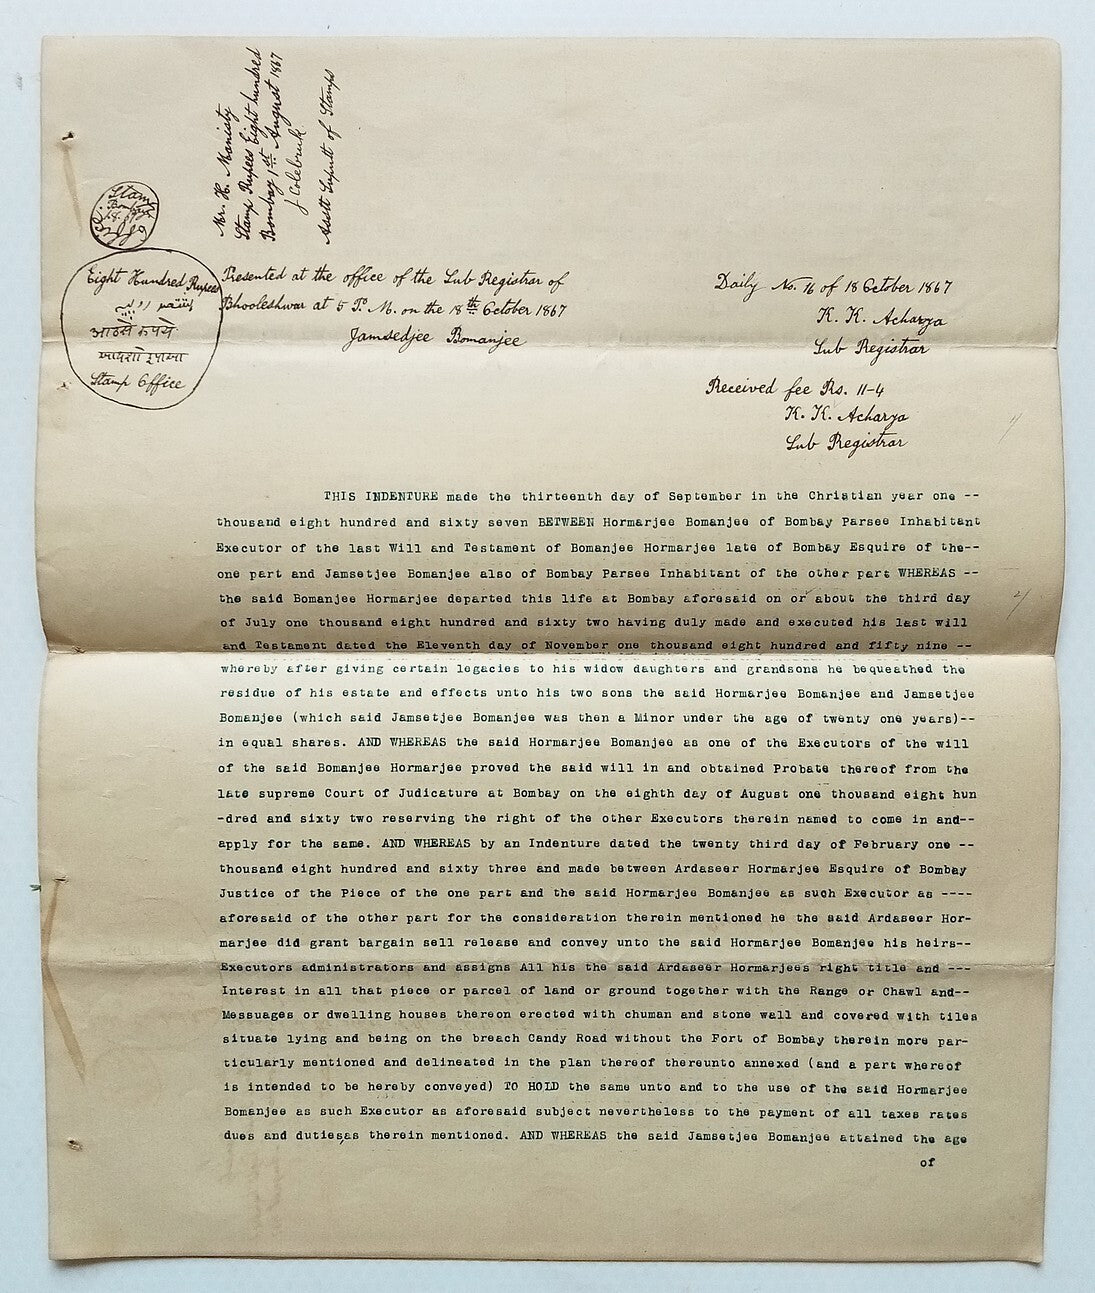 Mr. H. Manisty
Stamp Rupees Eight hundred
Bombay 1st August 1867
J Colebruk
Asstt Suputt of Stamps
Stamp
Bombay
Eight Hundred Rupees
आठसे रुपये
Stamp Office
Presented at the office of the Sub Registrar of
Bhooleshwar at 5 P. M. on the 18th October 1867
Jamsedjee Bomanjee
Daily No. 16 of 18 October 1867
K. K. Acharya
Sub Registrar
Received fee Rs. 11-4
K. K. Acharya
Sub Registrar
THIS INDENTURE made the thirteenth day of September in the Christian year one --
thousand eight hundred and sixty seven BETWEEN Hormarjee Bomanjee of Bombay Parsee Inhabitant
Executor of the last Will and Testament of Bomanjee Hormarjee late of Bombay Esquire of the--
one part and Jamsetjee Bomanjee also of Bombay Parsee Inhabitant of the other part WHEREAS --
the said Bomanjee Hormarjee departed this life at Bombay aforesaid on or about the third day
of July one thousand eight hundred and sixty two having duly made and executed his last will
and Testament dated the Eleventh day of November one thousand eight hundred and fifty nine --
whereby after giving certain legacies to his widow daughters and grandsons he bequeathed the
residue of his estate and effects unto his two sons the said Hormarjee Bomanjee and Jamsetjee
Bomanjee (which said Jamsetjee Bomanjee was then a Minor under the age of twenty one years)--
in equal shares. AND WHEREAS the said Hormarjee Bomanjee as one of the Executors of the will
of the said Bomanjee Hormarjee proved the said will in and obtained Probate thereof from the
late supreme Court of Judicature at Bombay on the eighth day of August one thousand eight hun
-dred and sixty two reserving the right of the other Executors therein named to come in and--
apply for the same. AND WHEREAS by an Indenture dated the twenty third day of February one --
thousand eight hundred and sixty three and made between Ardaseer Hormarjee Esquire of Bombay
Justice of the Piece of the one part and the said Hormarjee Bomanjee as such Executor as ----
aforesaid of the other part for the consideration therein mentioned he the said Ardaseer Hor-
marjee did grant bargain sell release and convey unto the said Hormarjee Bomanjee his heirs--
Executors administrators and assigns All his the said Ardaseer Hormarjees right title and ---
Interest in all that piece or parcel of land or ground together with the Range or Chawl and--
Messuages or dwelling houses thereon erected with chuman and stone wall and covered with tiles
situate lying and being on the breach Candy Road without the Fort of Bombay therein more par-
ticularly mentioned and delineated in the plan thereof thereunto annexed (and a part whereof
is intended to be hereby conveyed) TO HOLD the same unto and to the use of the said Hormarjee
Bomanjee as such Executor as aforesaid subject nevertheless to the payment of all taxes rates
dues and dutiesas therein mentioned. AND WHEREAS the said Jamsetjee Bomanjee attained the age
of